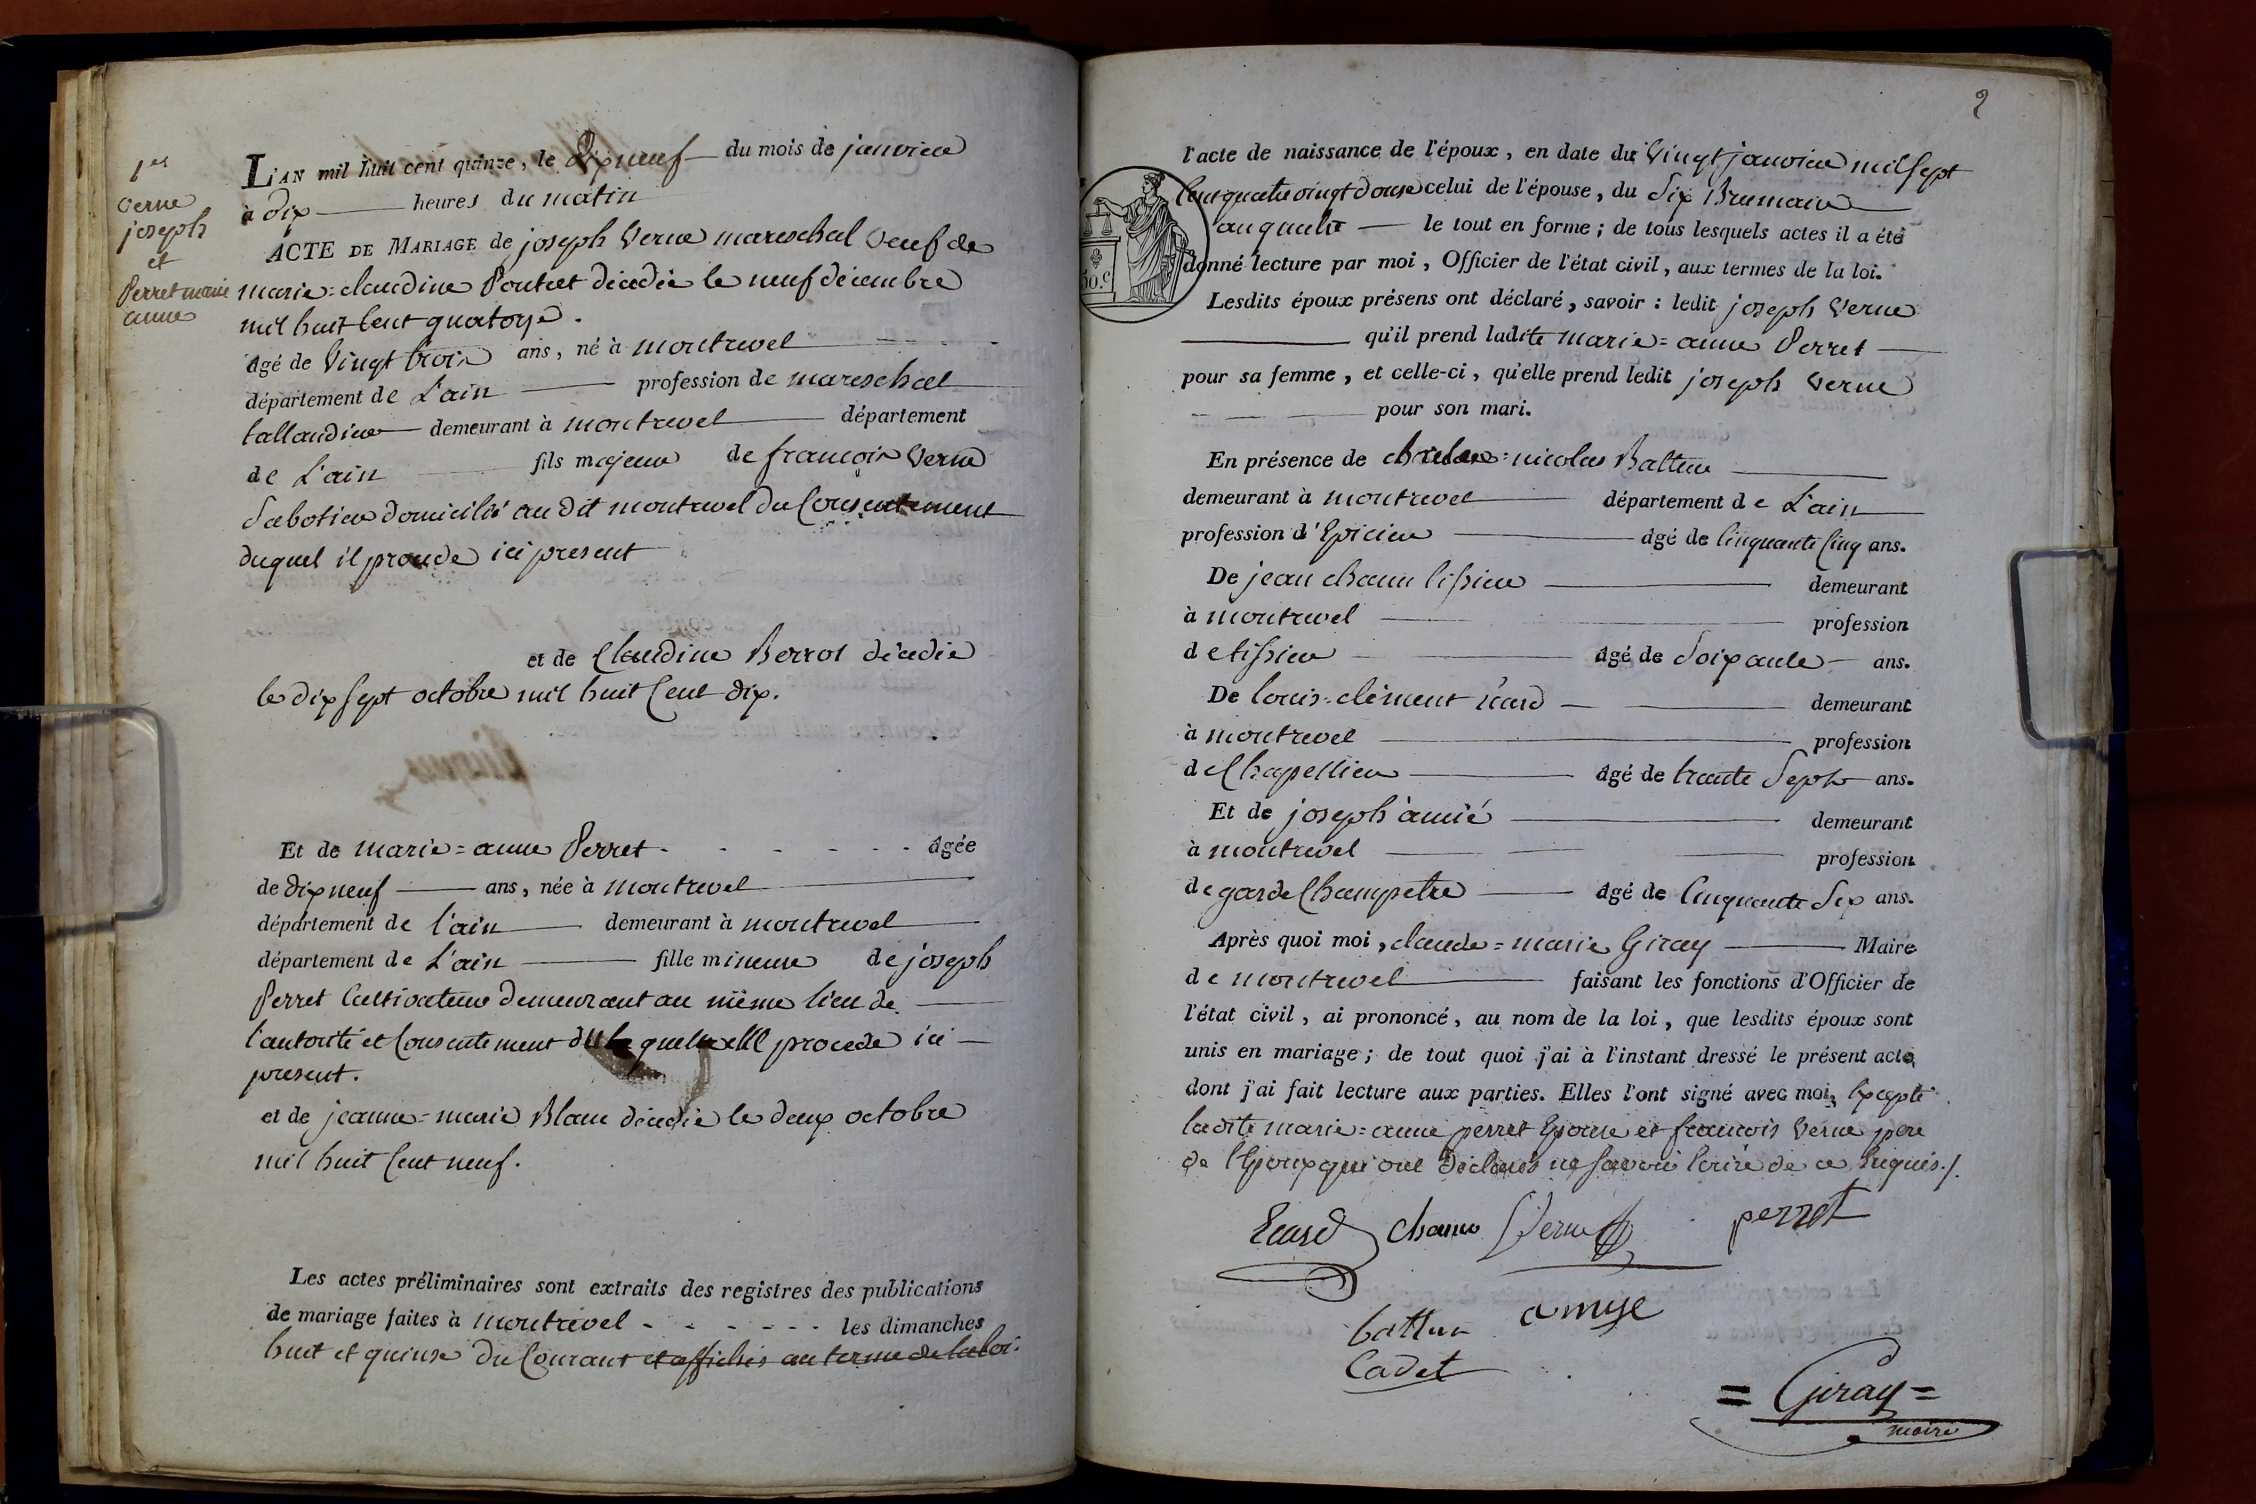 1er
Verne
joseph
et
Perret marie
anne
L'AN mil huit cent quinze, le Dix neuf du mois de janvier
à dix heures du matin
ACTE DE MARIAGE de joseph Verne mareschal veuf de
marie=claudine Poncet décédée le neuf décembre
mil huit Cent quatorze.
âgé de Vingt trois ans, né à montrevel
département de L'ain profession de mareschal
tallandier demeurant à montrevel département
de L'ain fils majeur de francois Verne
Sabotier domicilié au dit montrevel du Consentement
duquel il procede ici present
et de Claudine Berrot décédée
le dix Sept octobre mil huit Cent dix.
Et de marie=anne Perret âgée
de dix neuf ans, née à montrevel
département de l'ain demeurant à montrevel
département de L'ain fille mineure de joseph
Perret Cultivateur demeurant au même lieu de
l'autorité et Consentement duquel elle procede ici
present.
et de jeanne=marie Blanc décédée le deux octobre
mil huit Cent neuf.
Les actes préliminaires sont extraits des registres des publications
de mariage faites à montrevel les dimanches
huit et quinze du Courant et affichés au terme de la loi.
2
l'acte de naissance de l'époux, en date du Vingt janvier mil Sept
Cent quatre vingt douze celui de l'épouse, du Six Brumaire
an quatre le tout en forme; de tous lesquels actes il a été
donné lecture par moi, Officier de l'état civil, aux termes de la loi.
50.C
Lesdits époux présens ont déclaré, savoir: ledit joseph Verne
qu'il prend ladite marie=anne Perret
pour sa femme, et celle-ci, qu'elle prend ledit joseph Verne
pour son mari.
En présence de nicolas Battur
demeurant à montrevel département de L'ain
profession d'Epicier âgé de Cinquante Cinq ans.
De jean chanu tissier demeurant
à montrevel profession
de tissier âgé de Soixante ans.
De louis=clément écard demeurant
à montrevel profession
de Chapellier âgé de trante Sept ans.
Et de joseph amié demeurant
à montrevel profession
de garde Champetre âgé de Cinquante Six ans.
Après quoi moi, claude=marie Giray Maire
de montrevel faisant les fonctions d'Officier de
l'état civil, ai prononcé, au nom de la loi, que lesdits époux sont
unis en mariage; de tout quoi j'ai à l'instant dressé le présent acte,
dont j'ai fait lecture aux parties. Elles l'ont signé avec moi, Excepté
ladite marie=anne perret Epouse et francois Verne pere
de l'Epoux qui ont déclarés ne Savoir Ecrire de ce Enquis./.
Ecard chanu Verne perret
battur amye
Cadet
= Giray =
maire